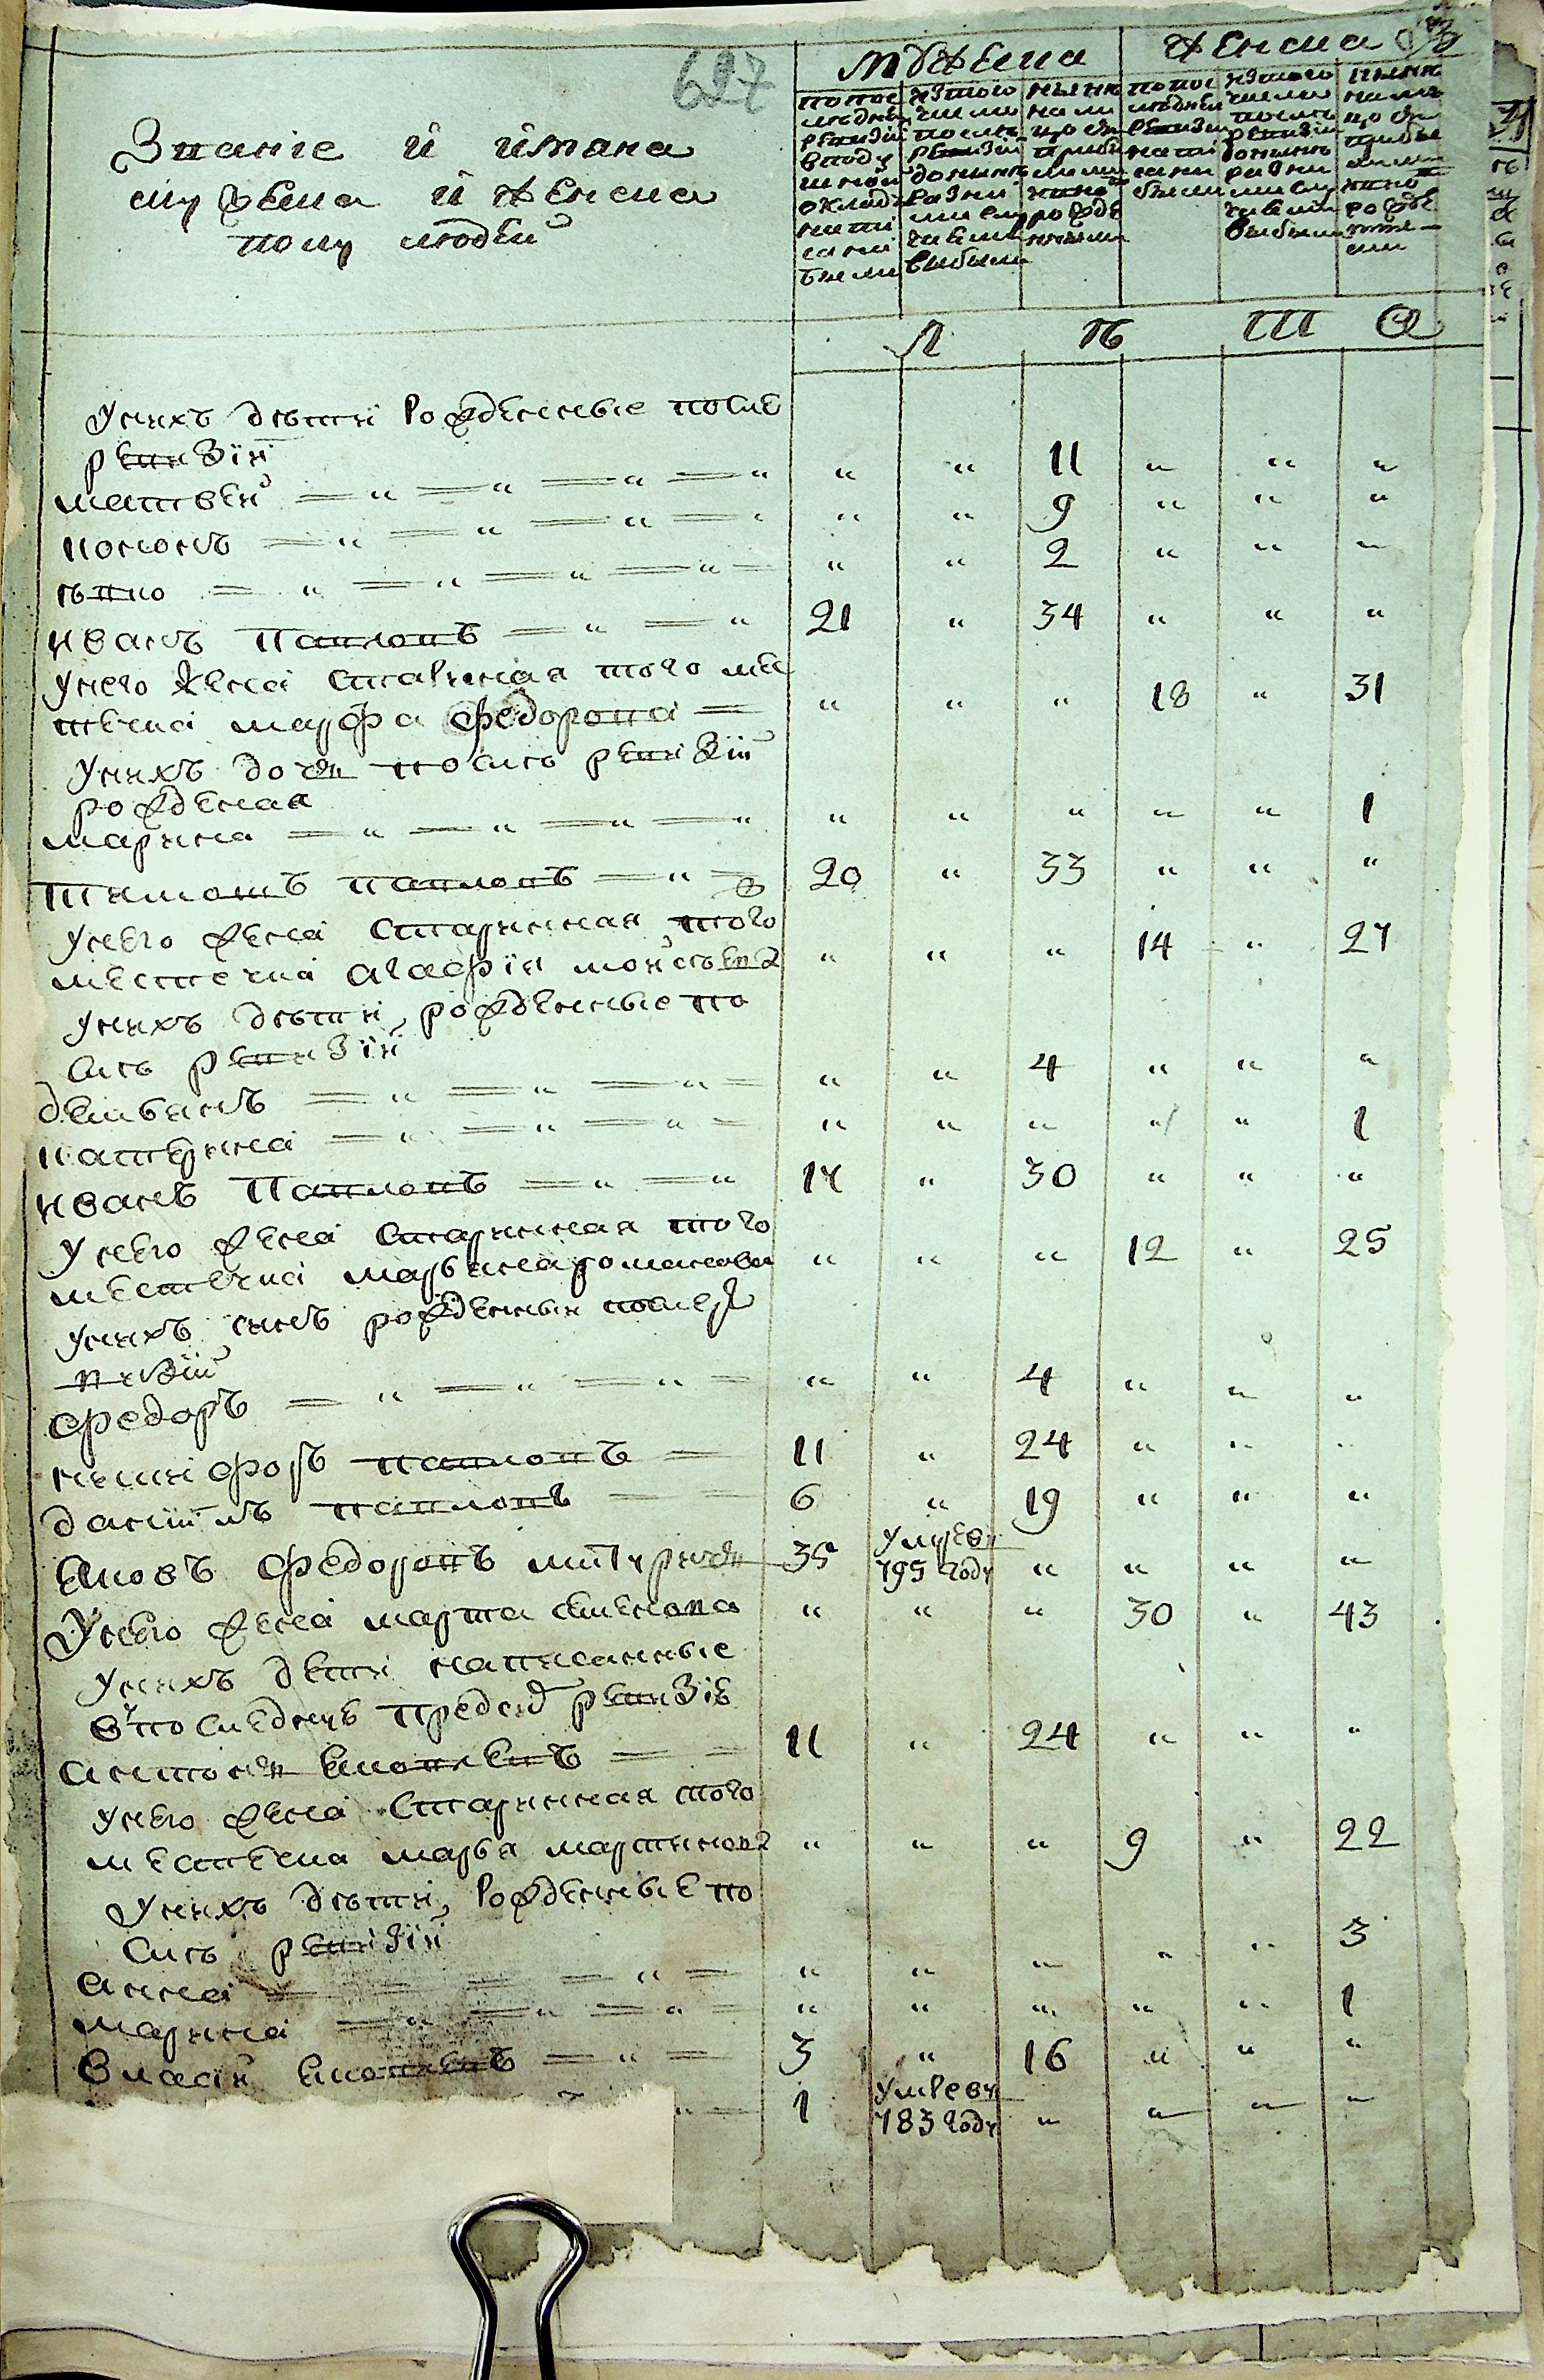 627
Званіе и имяна
мужеска и женска
полу людей
мужеска
женска
по пос
ледней
ревизии
в поду
шной
оклад
напи
сани
были
изтого
числа
после
ревизии
до ныне
разны
ми слу
чаеми
выбыли
ныне
на ли
цо съ
прибы
лыми
и вно
рожде
нными
по пос
ледней
ревизии
напи
сани
были
изтого
числа
после
ревизии
до ныне
разны
ми слу
чаеми
выбыли
ныне
на ли
цо съ
прибы
лыми
и вно
рожде
нны
ми
Л ѣ т а
У нихъ дѣти рожденные после
ревизии
матвей — " — " — " — " " " 11 " " "
кононъ — " — " — " — " " 9 " " "
— " — " — " — " — " " 2 " " "
иванъ павловъ — " — " 21 " 34 " " "
У него жена старинная того ме
стечка марфа федорова — " " " 18 " 31
У нихъ дочь после ревизии
рожденая
марина — " — " — " — " " " " " " 1
павловъ — " — 20 " 33 " " "
У него жена старинная того
местечка агафія мойсѣева " " " 14 " 27
У нихъ дѣти рожденные по
слѣ ревизии
демьянъ — " — " — " — " " 4 " " "
катерина — " — " — " — " " " " " 1
иванъ павловъ — " — " 17 " 30 " " "
У него жена старинная того
местечка марьяна романова " " " 12 " 25
У нихъ сынъ рожденный после ре
визии
федоръ — " — " — " — " " 4 " " "
никифоръ павловъ — 11 " 24 " " "
данііилъ павловъ — — 6 " 19 " " "
яковъ федоровъ 35 умре въ
795 году " " " "
У него жена марта семенова " " " 30 " 43
У нихъ дети написанные
в последнѣ пред сей ревизіе
антонъ яковлевъ — — 11 " 24 " " "
У него жена старинная того
местечка марья мартинова " " " 9 " 22
У нихъ дѣти рожденные по
слѣ ревизии
анна — — — " — " " " " " 3
марина — " — " — " — " " " " " 1
власій яковлевъ — " — 3 " 16 " " "
" — 1 умре въ
783 году " " " "